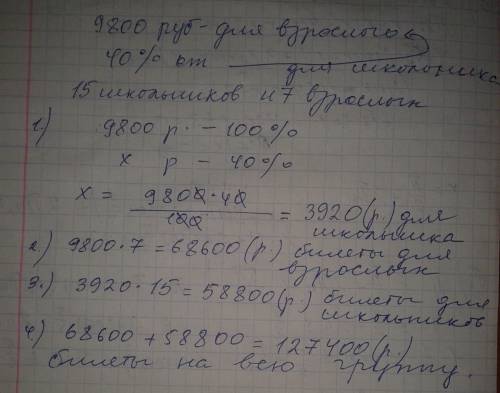 9800 руб - для взрослого
40% от для школьника
15 школьников и 7 взрослых
1.) 9800 р. - 100%
х р - 40%
х = 9800·40 / 100 = 3920 (р.) для школьника
2.) 9800·7 = 68600 (р.) билеты для взрослых
3.) 3920·15 = 58800 (р.) билеты для школьников
4.) 68600 + 58800 = 127400 (р.)
билеты на всю группу.